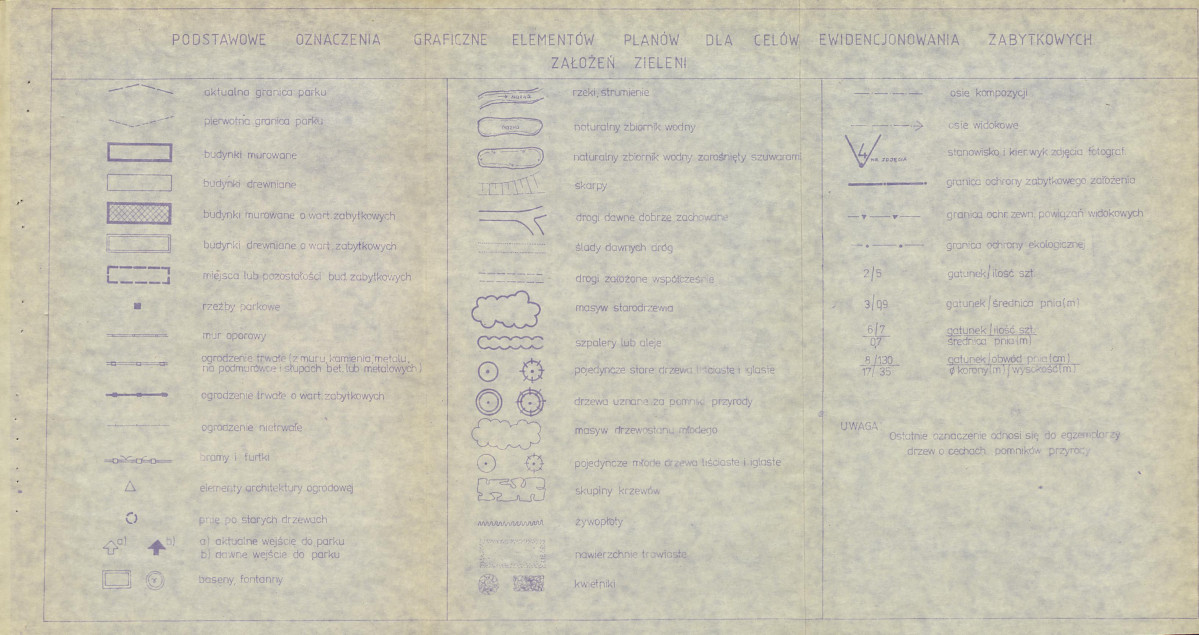 PODSTAWOWE OZNACZENIA GRAFICZNE ELEMENTÓW PLANÓW DLA CELÓW EWIDENCJONOWANIA ZABYTKOWYCH
ZAŁOŻEŃ ZIELENI
aktualna granica parku
pierwotna granica parku
budynki murowane
budynki drewniane
budynki murowane o wart. zabytkowych
budynki drewniane o wart. zabytkowych
miejsca lub pozostałości bud. zabytkowych
rzeźby parkowe
mur oporowy
ogrodzenie trwałe (z muru, kamienia, metalu,
na podmurówce i słupach bet. lub metalowych)
ogrodzenie trwałe o wart. zabytkowych
ogrodzenie nietrwałe
bramy i furtki
elementy architektury ogrodowej
pnie po starych drzewach
a) b) a) aktualne wejście do parku
b) dawne wejście do parku
baseny, fontanny
rzeki, strumienie
naturalny zbiornik wodny
naturalny zbiornik wodny zarośnięty szuwarami
skarpy
drogi dawne dobrze zachowane
ślady dawnych dróg
drogi założone współcześnie
masyw starodrzewia
szpalery lub aleje
pojedyncze stare drzewa liściaste i iglaste
drzewa uznane za pomniki przyrody
masyw drzewostanu młodego
pojedyncze młode drzewa liściaste i iglaste
skupiny krzewów
żywopłoty
nawierzchnie trawiaste
kwietniki
osie kompozycji
osie widokowe
4 NR ZDJĘCIA stanowisko i kier. wyk. zdjęcia fotograf.
granica ochrony zabytkowego założenia
granica ochr. zewn. powiązań widokowych
granica ochrony ekologicznej
2/5 gatunek/ilość szt.
3/0,9 gatunek/średnica pnia (m)
6/7 gatunek/ilość szt.
0,7 średnica pnia (m)
8/130 gatunek/obwód pnia (cm)
17/35 ϕ korony (m)/wysokość (m)
UWAGA:
Ostatnie oznaczenie odnosi się do egzemplarzy
drzew o cechach pomników przyrody